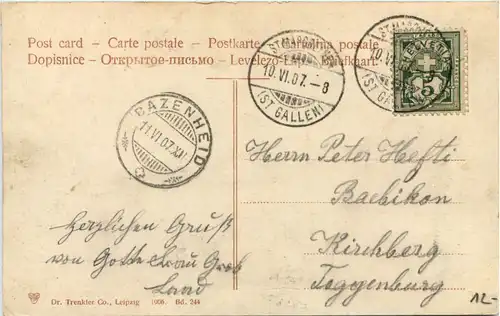 Post card – Carte postale – Postkarte – Cartolina postale
Dopisnice – Открытое-письмо – Levelező-Lap – Brefkhart
ST MARGRETHEN
10.VI.07.–8
(ST GALLEN)
10.VI
HELVETIA
5
BAZENHEID
11.VI.07.XII
Herrn Peter Hefti
Baebikon
Kirchberg
Toggenburg
Herzlichen Gruß
von
Dr. Trenkler Co., Leipzig 1906. Bd. 244
12.-